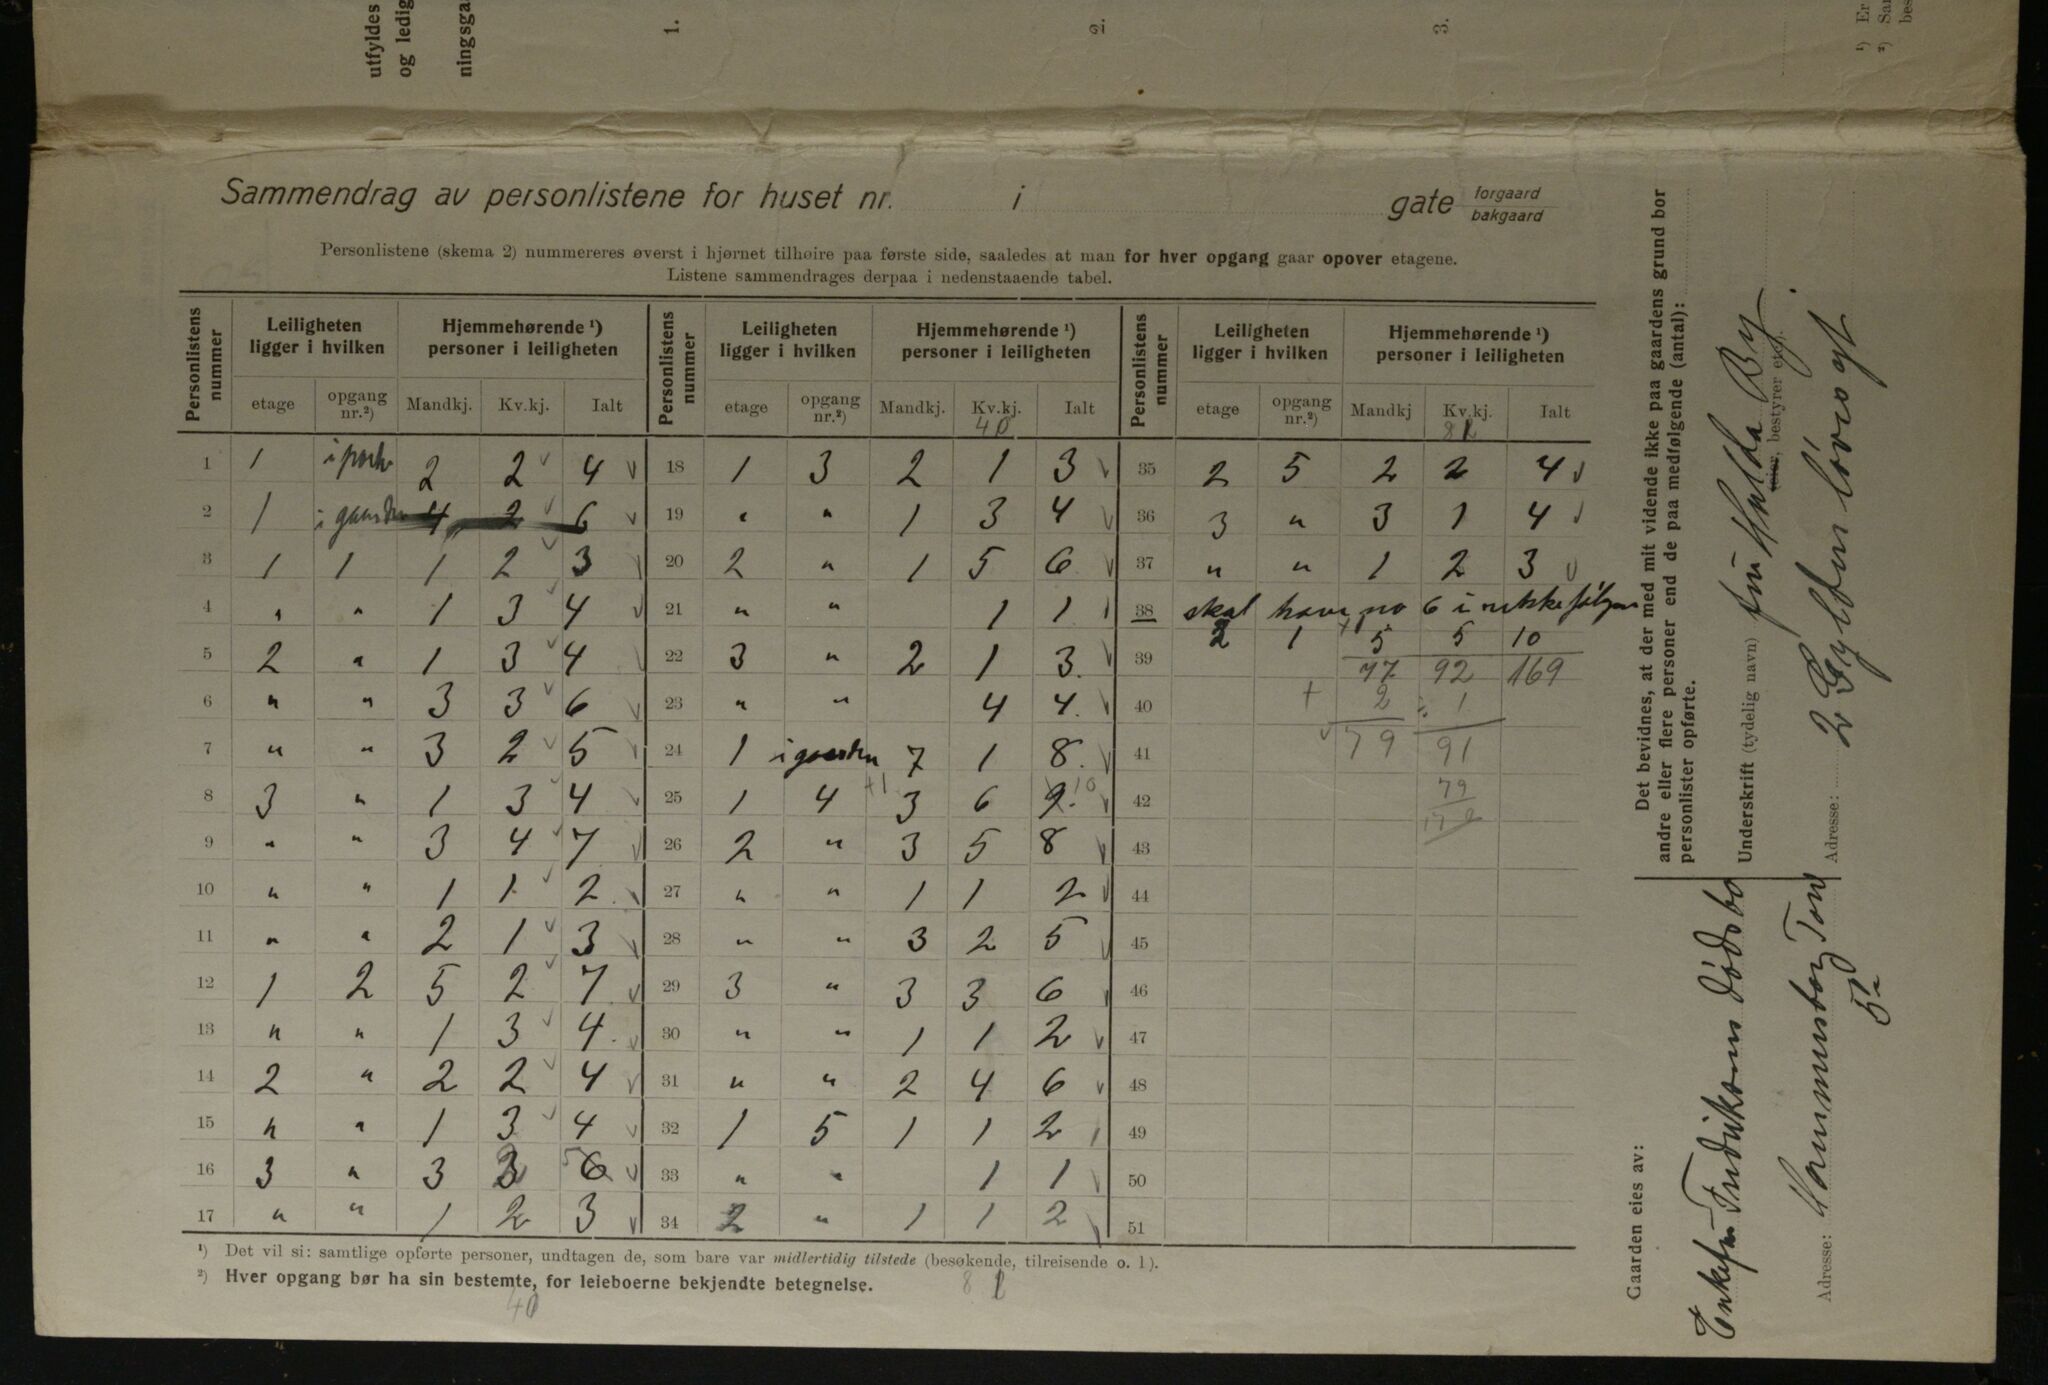 utfyldes
og ledig
ningsga
1.
2.
3.
¹) Er
²) Sar
bes
Sammendrag av personlistene for huset nr. i gate forgaard bakgaard
Personlistene (skema 2) nummereres øverst i hjørnet tilhøire paa første side, saaledes at man for hver opgang gaar opover etagene.
Listene sammendrages derpaa i nedenstaaende tabel.
Personlistens nummer | Leiligheten ligger i hvilken | Hjemmehørende ¹) personer i leiligheten
etage | opgang nr.²) | Mandkj. | Kv.kj. | Ialt
1 | 1 | i porten | 2 | 2 | 4
2 | 1 | i gaarden | 4 | 2 | 6
3 | 1 | 1 | 1 | 2 | 3
4 | " | " | 1 | 3 | 4
5 | 2 | " | 1 | 3 | 4
6 | " | " | 3 | 3 | 6
7 | " | " | 3 | 2 | 5
8 | 3 | " | 1 | 3 | 4
9 | " | " | 3 | 4 | 7
10 | " | " | 1 | 1 | 2
11 | " | " | 2 | 1 | 3
12 | 1 | 2 | 5 | 2 | 7
13 | " | " | 1 | 3 | 4
14 | 2 | " | 2 | 2 | 4
15 | " | " | 1 | 3 | 4
16 | 3 | " | 3 | 3 2 | 5 6
17 | " | " | 1 | 2 | 3
Personlistens nummer | Leiligheten ligger i hvilken | Hjemmehørende ¹) personer i leiligheten
etage | opgang nr.²) | Mandkj. | Kv.kj. | Ialt
40
18 | 1 | 3 | 2 | 1 | 3
19 | " | " | 1 | 3 | 4
20 | 2 | " | 1 | 5 | 6
21 | " | " | | 1 | 1
22 | 3 | " | 2 | 1 | 3
23 | " | " | | 4 | 4
24 | 1 | i gaarden | 7 | 1 | 8
25 | 1 | 4 | +1 3 | 6 | 9 10
26 | 2 | " | 3 | 5 | 8
27 | " | " | 1 | 1 | 2
28 | " | " | 3 | 2 | 5
29 | 3 | " | 3 | 3 | 6
30 | " | " | 1 | 1 | 2
31 | " | " | 2 | 4 | 6
32 | 1 | 5 | 1 | 1 | 2
33 | " | " | | 1 | 1
34 | 2 | " | 1 | 1 | 2
Personlistens nummer | Leiligheten ligger i hvilken | Hjemmehørende ¹) personer i leiligheten
etage | opgang nr.²) | Mandkj | Kv.kj. | Ialt
35 | 2 | 5 | 2 | 2 | 4
36 | 3 | " | 3 | 1 | 4
37 | " | " | 1 | 2 | 3
38 | skal have no 6 i rækkefølgen
2 | 1 | 5 | 5 | 10
39 | 77 | 92 | 169
40 | + 2 | ÷ 1
41 | 79 | 91
42 | 79
43
44
45
46
47
48
49
50
51
¹) Det vil si: samtlige opførte personer, undtagen de, som bare var midlertidig tilstede (besøkende, tilreisende o. l).
²) Hver opgang bør ha sin bestemte, for leieboerne bekjendte betegnelse.
40
Det bevidnes, at der med mit vidende ikke paa gaardens grund bor
andre eller flere personer end de paa medfølgende (antal):
personlister opførte.
Underskrift (tydelig navn) fru Hulda By
eier, bestyrer etc.
Adresse: 2 Gyldenløvesgt
Gaarden eies av:
Enkefru Fredriksens dødsbo
Adresse: Hammersborg Torv
5